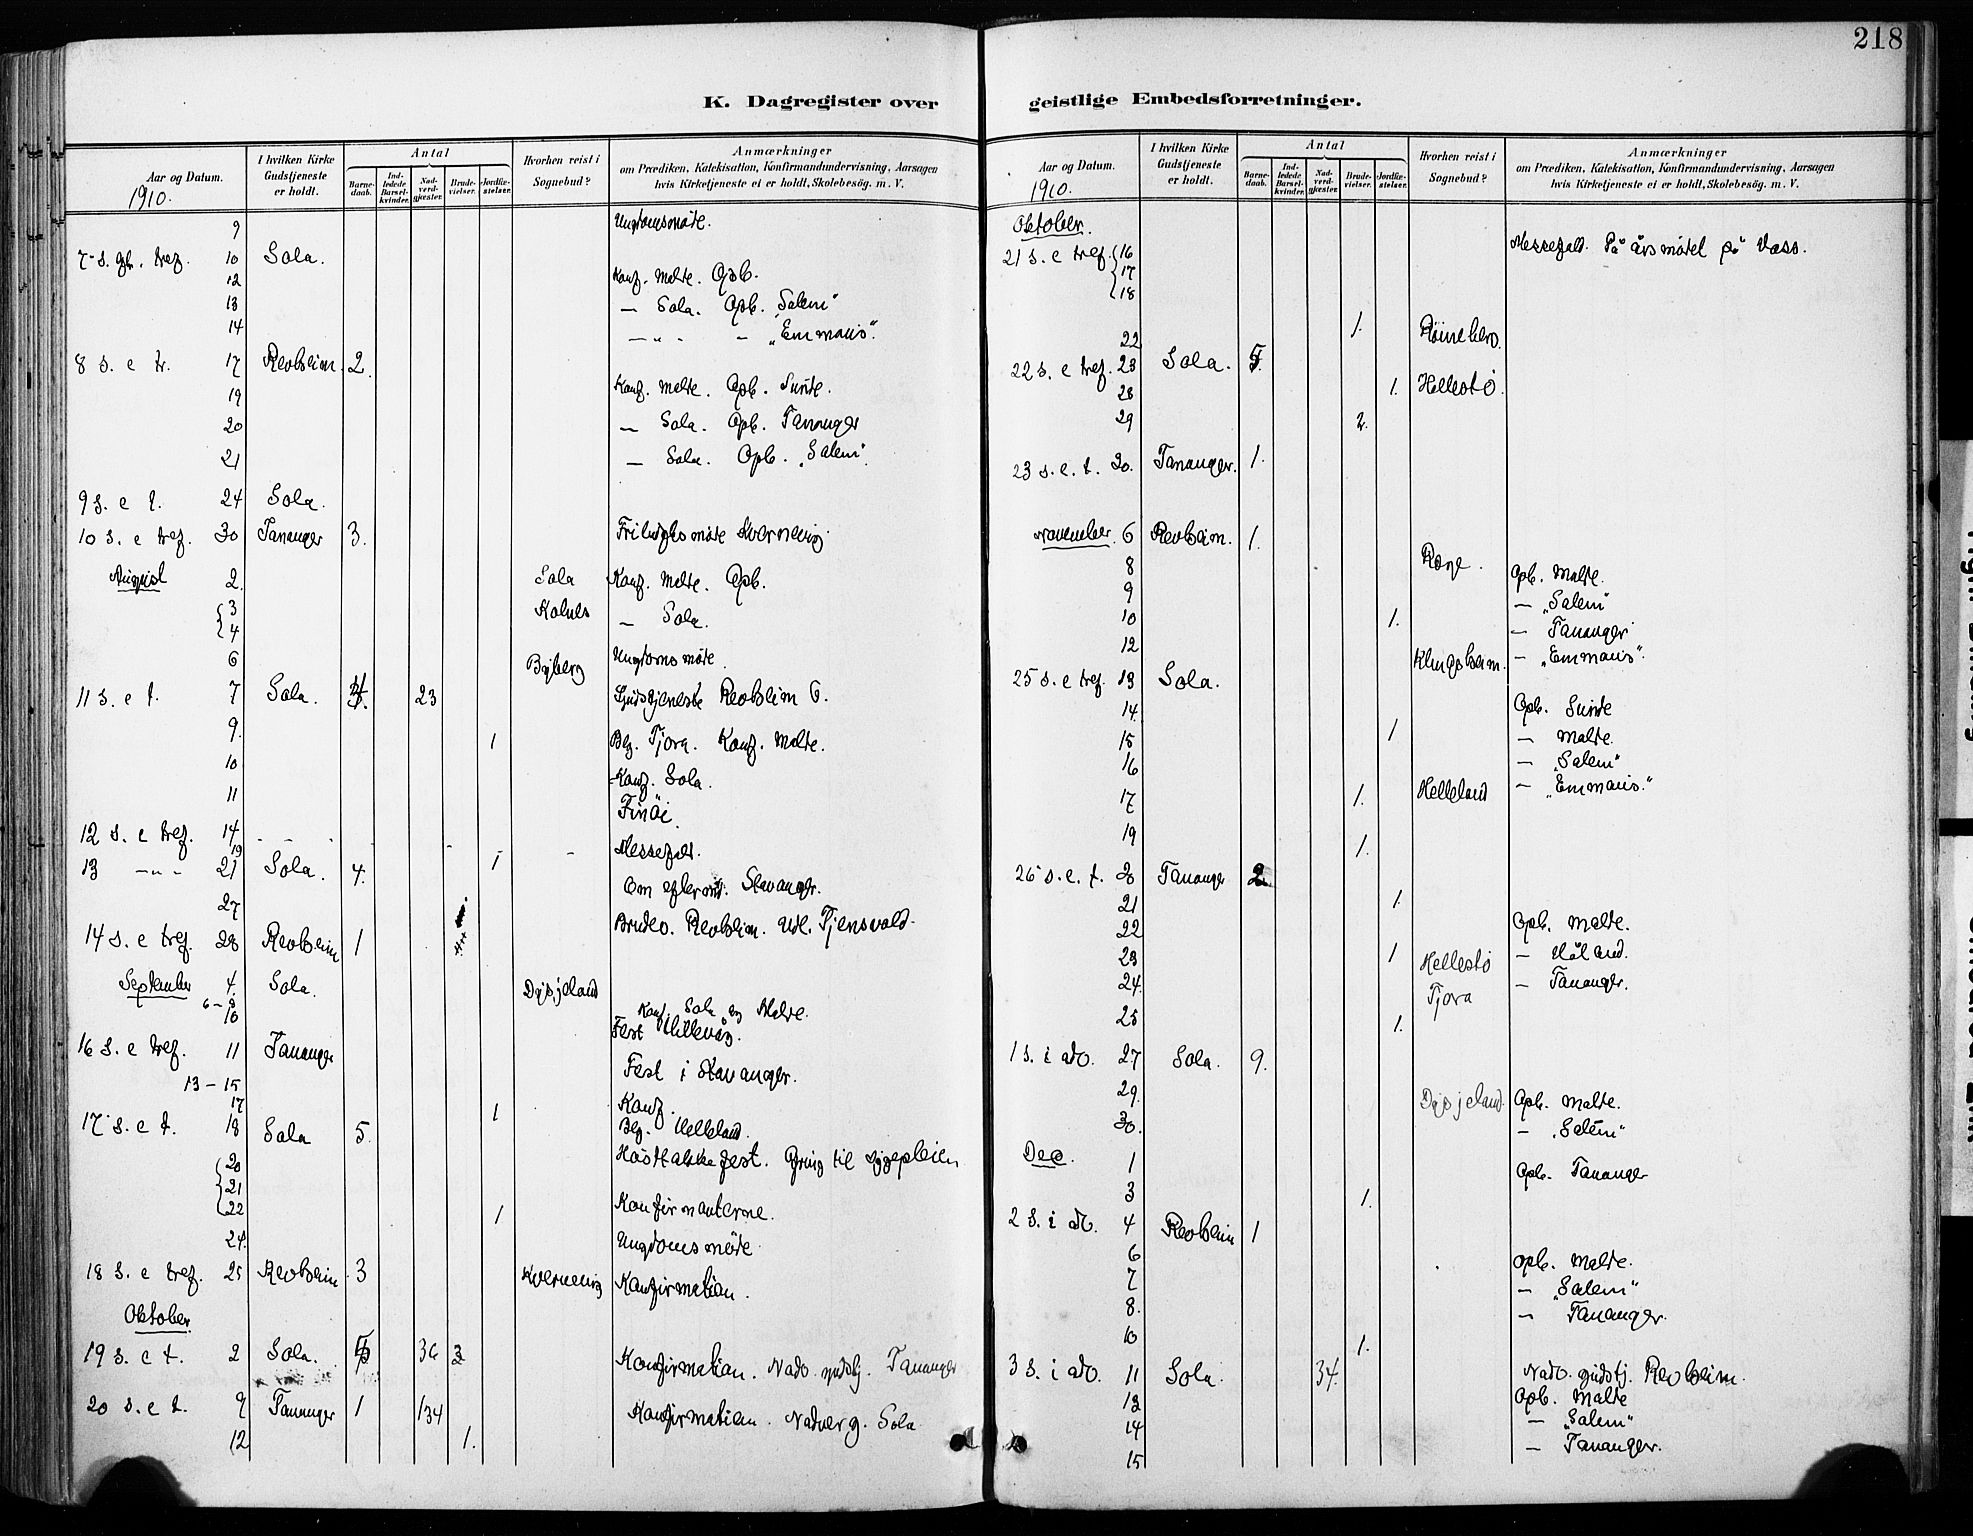 218
K. Dagregister over
Aar og Datum.
1910.
I hvilken Kirke Gudstjeneste er holdt.
Antal
Barnedaab.
Indledede Barselkvinder.
Nadverdgjester.
Brudevielser.
Jordfæstelser.
Hvorhen reist i Sognebud?
Anmærkninger
om Prædiken, Katekisation, Konfirmandundervisning, Aarsagen
hvis Kirketjeneste ei er holdt, Skolebesøg. m. V.
9 Ungdomsmöte.
7 s. tref. 10 Sola.
12 Konf. Malde. Opb.
13 — Sola. Opb. "Salem"
14 — " — "Emmaus".
8 s. e tr. 17 Revheim 2.
19 Konf. Malde. Opb. Sunde.
20 — Sola. Opb. Tananger
21 — Sola. Opb. "Salem".
9 s. e t. 24 Sola.
10 s. e tref. 30 Tananger 3. Friluftsmöte Kvernevig
August 2. Sola Konf. Malde. Opb.
3 Kolnes — Sola.
4
6 Byberg Ungdomsmöte
11 s. e t. 7 Sola. 23 Gudstjeneste Revheim 6.
9. 1 Beg. Tjora. Konf. Malde.
10 Konf. Sola.
11 Finöi
12 s. e tref. 14 - - - Messefald.
19 1
13 - " - 21 Sola. 4. Om efterm. Stavanger.
27 Brudev. Revheim. Udl. Tjensvold
14 s. e tref. 28 Revheim 1
September 4. Sola. Dysjeland
6-8 Konf. Sola og Malde.
10 Fest Hillevåg.
16 s. e tref. 11 Tananger Fest i Stavanger.
13-15 Konf.
17 1 Beg. Helleland.
17 s. e t. 18 Sola 5. Hösttakkefest. Ofring til sygepleien
20
21
22 Konfirmanterne.
24. 1 Ungdomsmöte
18 s. e tref. 25 Revheim 3 Kvernevig Konfirmation.
Oktober
19 s. e t. 2 Sola. 36 Konfirmation. Nadv. gudstj. Tananger
20 s. e t. 9 Tananger 1 134 Konfirmation. Nadverg. Sola
12 1.
geistlige Embedsforretninger.
Aar og Datum.
1910.
I hvilken Kirke Gudstjeneste er holdt.
Antal
Barnedaab.
Indledede Barselkvinder.
Nadverdgjester.
Brudevielser.
Jordfæstelser.
Hvorhen reist i Sognebud?
Anmærkninger
om Prædiken, Katekisation, Konfirmandundervisning, Aarsagen
hvis Kirketjeneste ei er holdt, Skolebesög. m. V.
Oktober.
21 s. e tref. 16 Messefald. På årsmötet på Voss.
17
18
22 1. Röineberg.
22 s. e tref. 23 Sola. 5
28 1. Hellestö.
29 2.
23 s. e. t. 30. Tananger. 1.
November. 6 Revheim. 1.
8 Opb. Malde.
9 — "Salem"
10 1. — Tananger
12 Klingsheim. — "Emmaus".
25 s. e tref. 13 Sola.
14. Opb. Sunde
15 1 — Malde.
16 — "Salem"
17 1. Helleland — "Emmaus."
19 1.
26 s. e. t. 20 Tananger 2
21 1.
22 Opb. Malde.
23 1 Hellestö — Håland.
24. Tjora — Tananger.
25 1.
1 s. i adv. 27 Sola. 9.
29. Dysjeland. Opb. Malde.
30. — "Salem"
Dec. 1 Opb. Tananger
3 1.
2 s. i adv. 4 Revheim 1
6 Opb. Malde.
7 — "Salem"
8. — Tananger.
10 1.
3 s. i adv. 11 Sola. 34. Nadv. gudstj. Revheim.
13 Opb. Malde
14 — "Salem"
15 — Tananger.